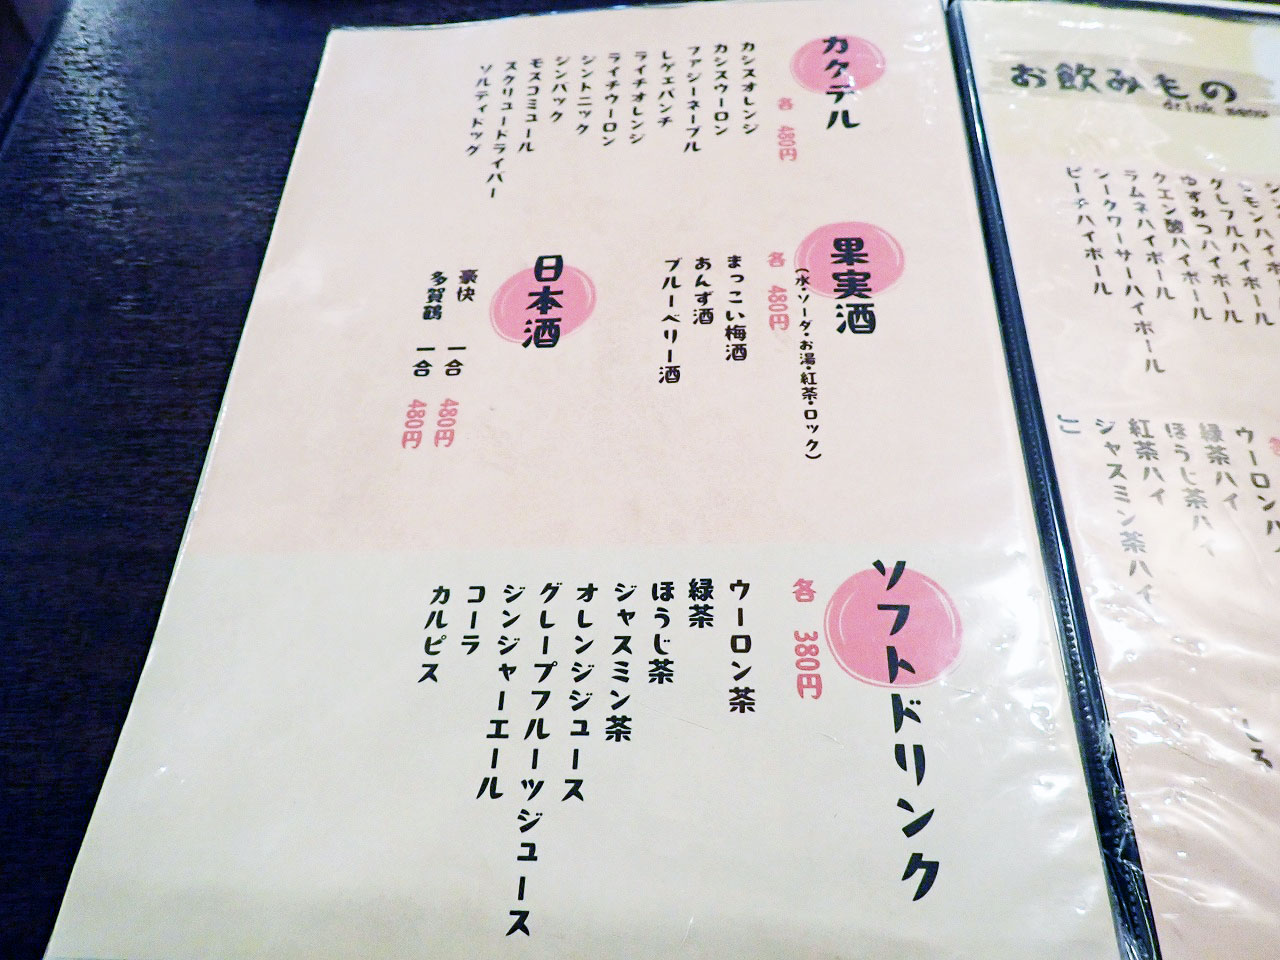 お飲みもの
レモンハイボール
グレフルハイボール
ゆずみつハイボール
クエン酸ハイボール
ラムネハイボール
シークワーサーハイボール
ピーチハイボール
ウーロンハイ
緑茶ハイ
ほうじ茶ハイ
紅茶ハイ
ジャスミン茶ハイ
カクテル
各 480円
カシスオレンジ
カシスウーロン
ファジーネーブル
レゲエパンチ
ライチオレンジ
ライチウーロン
ジントニック
ジンバック
モスコミュール
スクリュードライバー
ソルティドッグ
果実酒
(水・ソーダ・お湯・紅茶・ロック)
各 480円
まっこい梅酒
あんず酒
ブルーベリー酒
日本酒
豪快 一合 480円
多賀鶴 一合 480円
ソフトドリンク
各 380円
ウーロン茶
緑茶
ほうじ茶
ジャスミン茶
オレンジジュース
グレープフルーツジュース
ジンジャーエール
コーラ
カルピス